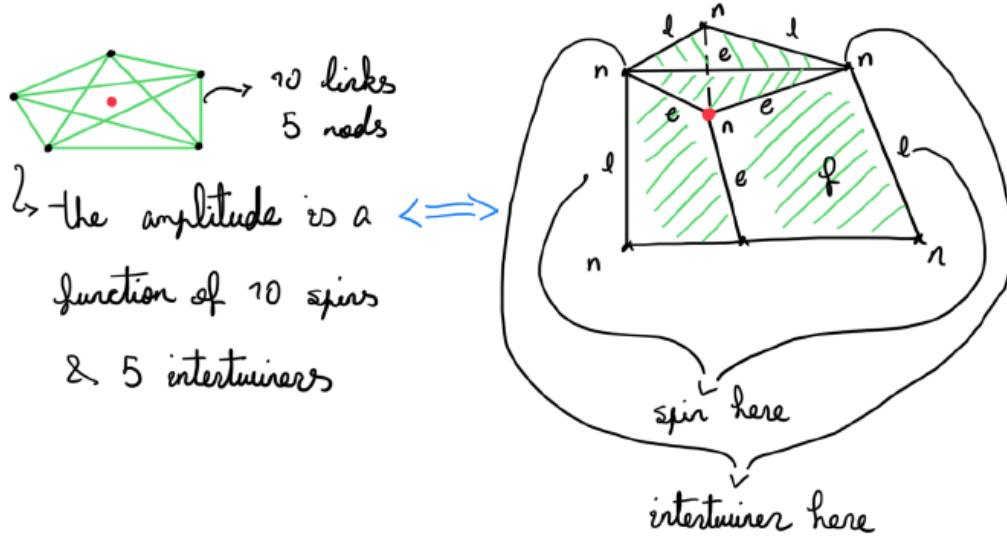 10 links
5 nods
the amplitude is a
function of 10 spins
& 5 intertwiners
n
l
l
n
e
n
e
e
n
l
e
f
l
n
n
spin here
intertwiner here